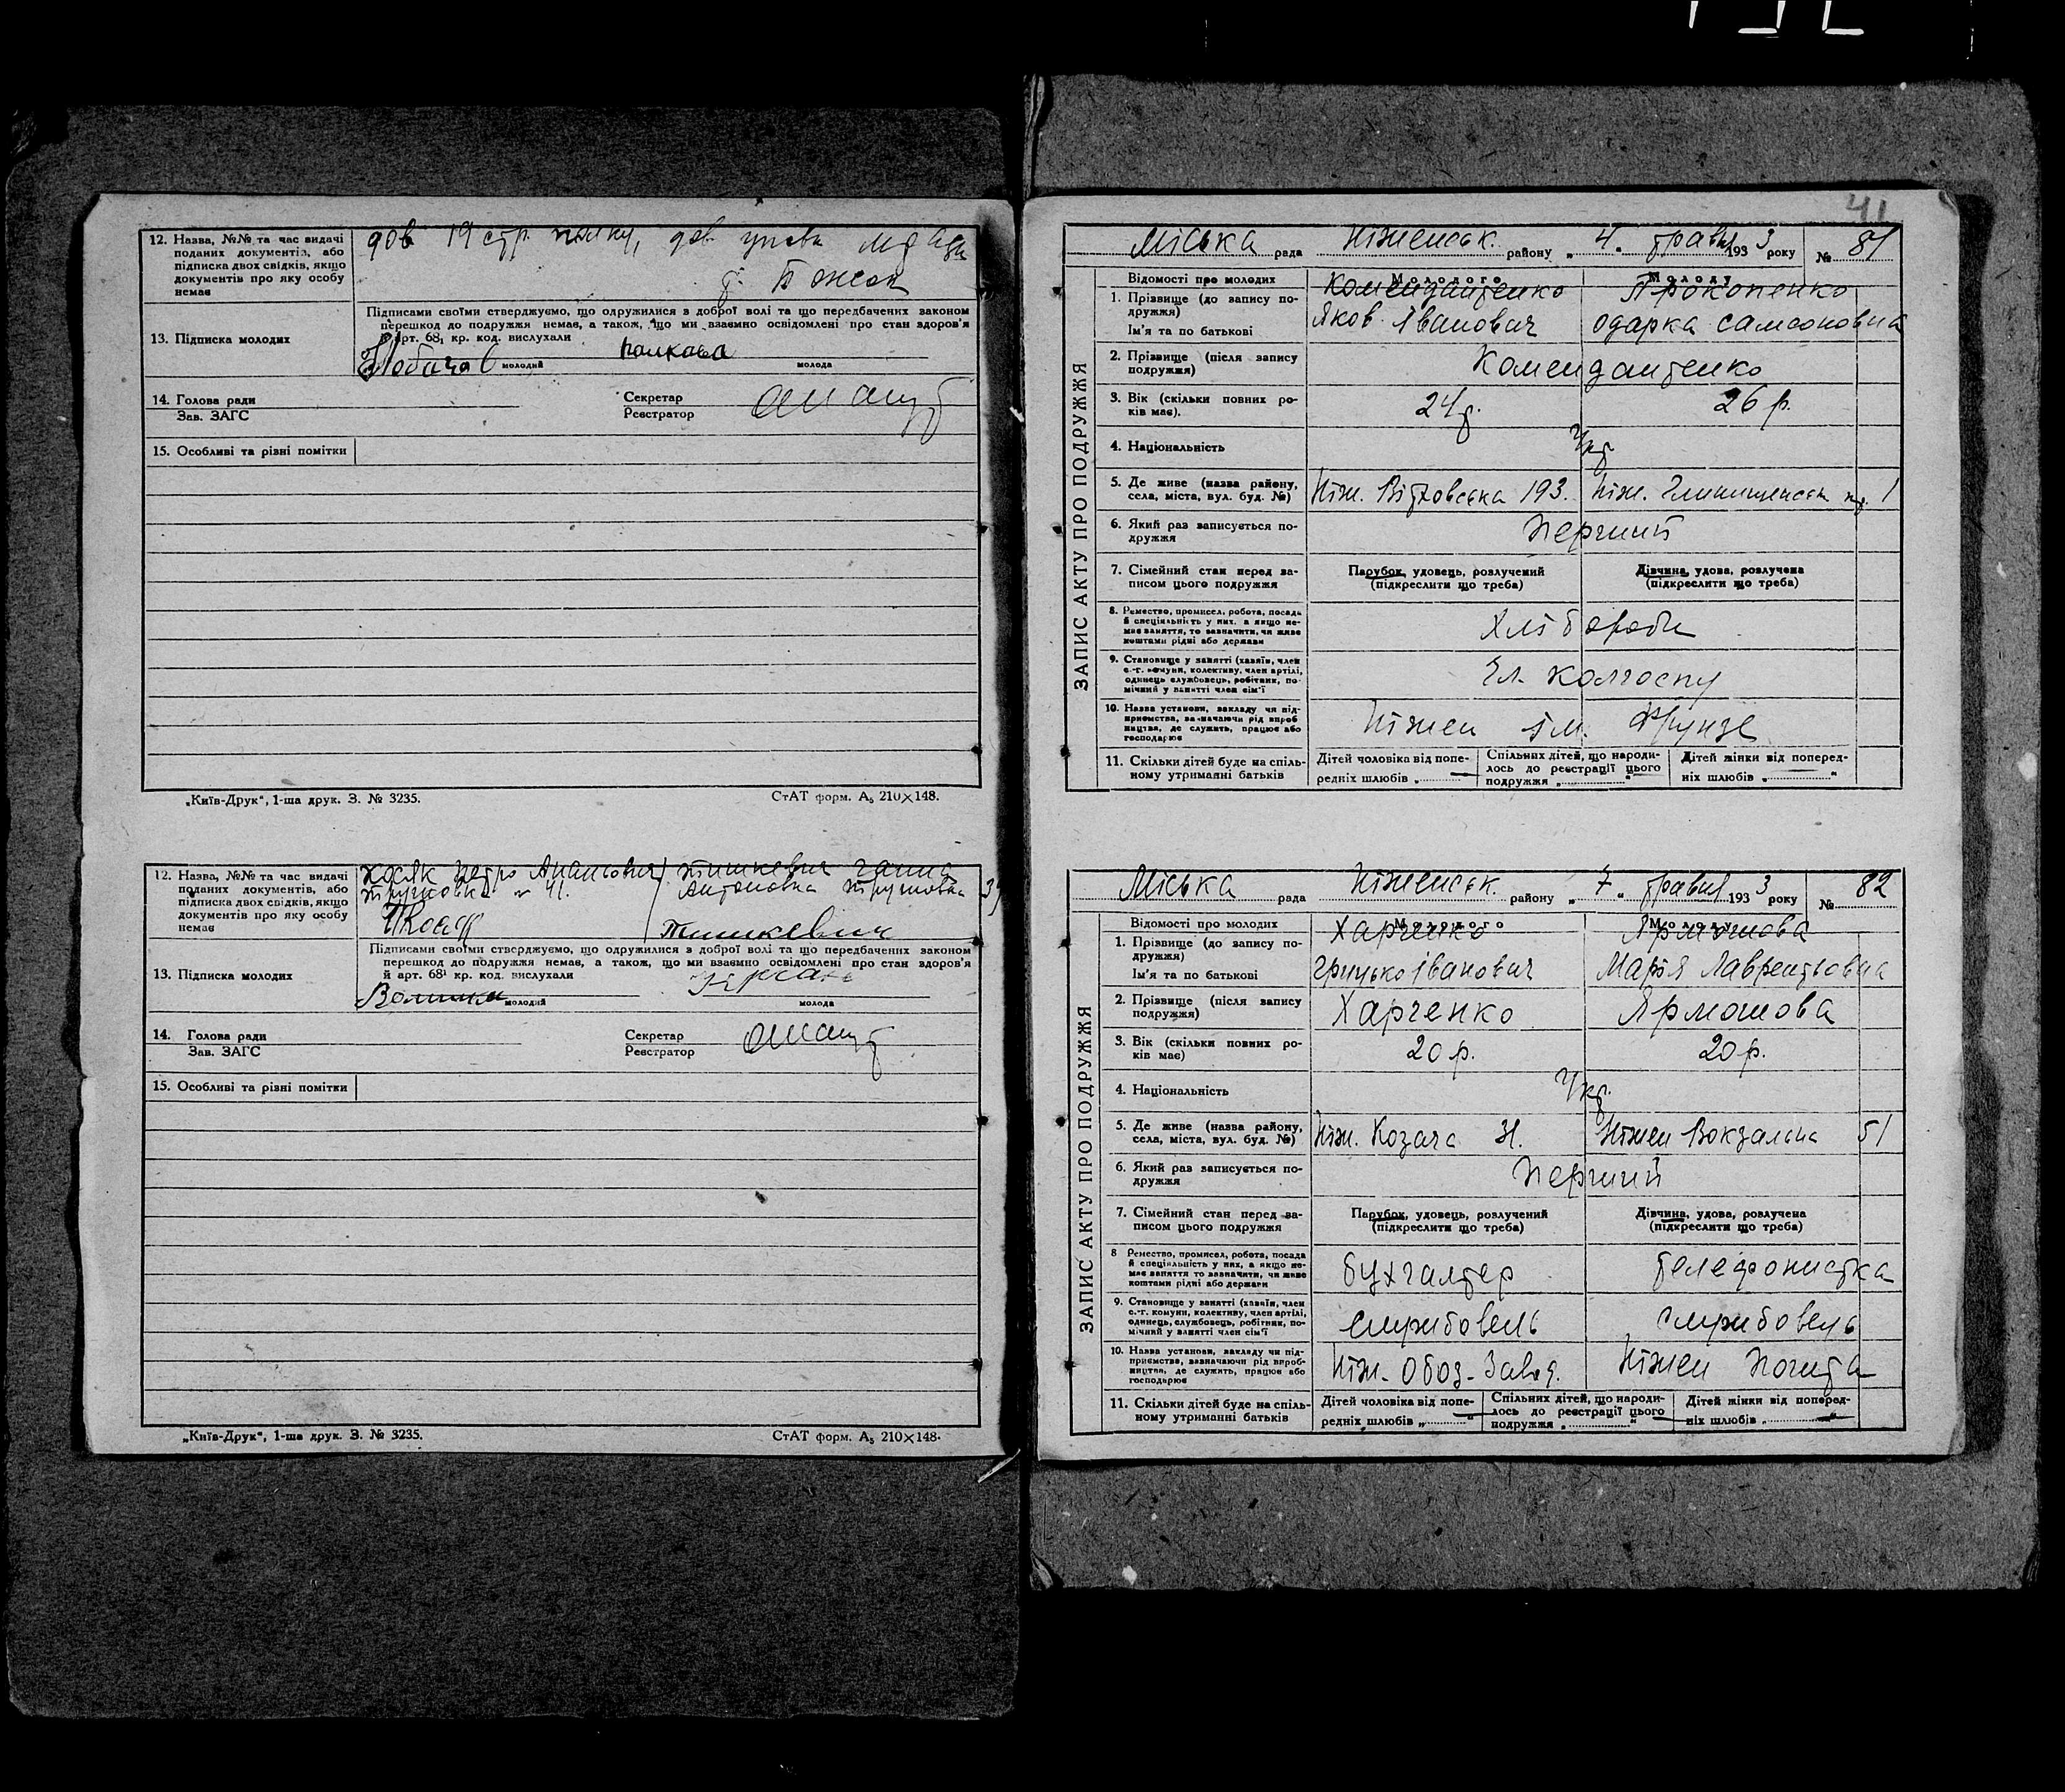 12. Назва, №№ та час видачі
поданих документів, або
підписка двох свідків, якщо
документів про яку особу
немає
дов 19 стр. полку, дов.
13. Підписка молодих
Підписами своїми стверджуємо, що одружилися з доброї волі та що передбачених законом
перешкод до подружжя немає, а також, що ми взаємно освідомлені про стан здоров'я
й арт. 68, кр. код. вислухали
молодий
молода
14. Голова ради
Зав. ЗАГС
Секретар
Реєстратор
15. Особливі та різні помітки
„Київ-Друк“, 1-ша друк. З. № 3235.
СтАТ форм. А₅ 210×148.
12. Назва, №№ та час видачі
поданих документів, або
підписка двох свідків, якщо
документів про яку особу
немає
Петро Тишкевич Ганна
41. Антоновна
Тишкевич
13. Підписка молодих
Підписами своїми стверджуємо, що одружилися з доброї волі та що передбачених законом
перешкод до подружжя немає, а також, що ми взаємно освідомлені про стан здоров'я
й арт. 68¹ кр. код. вислухали
молодий
молода
14. Голова ради
Зав. ЗАГС
Секретар
Реєстратор
15. Особливі та різні помітки
„Київ-Друк“, 1-ша друк. З. № 3235.
СтАТ форм. А₅ 210×148.
41
ЗАПИС АКТУ ПРО ПОДРУЖЖЯ
Міська рада Ніженськ. району „4“ травня 1933 року № 81
Відомості про молодих
Молодого
Молоду
1. Прізвище (до запису подружжя)
Комендантенко
Прокопенко
Ім'я та по батькові
Яков Іванович
Одарка Самсоновна
2. Прізвище (після запису
подружжя)
Комендантенко
3. Вік (скільки повних ро-
ків має).
24 р.
26 р.
4. Національність
Укр
5. Де живе (назва району,
села, міста, вул. буд. №)
Ніж. 193.
Ніж. 1
6. Який раз записується по-
дружжя
Перший
7. Сімейний стан перед за-
писом цього подружжя
Парубок, удовець, розлучений
(підкреслити що треба)
Дівчина, удова, розлучена
(підкреслити що треба)
8. Ремество, промисел, робота, посада
й спеціяльність у них, а якщо не-
має заняття, то зазначити, чи живе
коштами рідні або держави
Хлібороби
9. Становище у занятті (хазяїн, член
с.-г. комуни, колективу, член артілі,
одинець службовець, робітник, по-
мічний у занятті член сім'ї
Чл. колгоспу
10. Назва установи, закладу чи під-
приємства, зазначаючи рід вироб-
ництва, де служить, працює або
господарює
Ніжен ім. Фрунзе
11. Скільки дітей буде на спіль-
ному утриманні батьків
Дітей чоловіка від попе-
редніх шлюбів „ “
Спільних дітей, що народи-
лось до реєстрації цього
подружжя „ “
Дітей жінки від поперед-
ніх шлюбів „ “
ЗАПИС АКТУ ПРО ПОДРУЖЖЯ
Міська рада Ніженськ. району „7“ травня 1933 року № 82
Відомості про молодих
Молодого
Молоду
1. Прізвище (до запису по-
дружжя)
Харченко
Ярмошова
Ім'я та по батькові
Грицько Іванович
Марія Лаврентьовна
2. Прізвище (після запису
подружжя)
Харченко
Ярмошова
3. Вік (скільки повних ро-
ків має)
20 р.
20 р.
4. Національність
Укр.
5. Де живе (назва району,
села, міста, вул. буд. №)
Ніж. Козача
Ніжен Вокзальна 51
6. Який раз записується по-
дружжя
Перший
7. Сімейний стан перед за-
писом цього подружжя
Парубок, удовець, розлучений
(підкреслити що треба)
Дівчина, удова, розлучена
(підкреслити що треба)
8 Ремество, промисел, робота, посада
й спеціяльність у них, а якщо не-
має заняття то зазначити, чи живе
коштами рідні або держави
бухгалтер
телефонистка
9. Становище у занятті (хазяїн, член
с.-г. комуни, колективу, член артілі,
одинець, службовець, робітник, по-
мічний у занятті член сім'ї
службовець
службовець
10. Назва установи, закладу чи під-
приємства, зазначаючи рід вироб-
ництва, де служить, працює або
господарює
Ніж. Обоз. Завод.
Ніжен Пошта
11. Скільки дітей буде на спіль-
ному утриманні батьків
Дітей чоловіка від попе-
редніх шлюбів „ “
Спільних дітей, що народи-
лось до реєстрації цього
подружжя „ “
Дітей жінки від поперед-
ніх шлюбів „ “